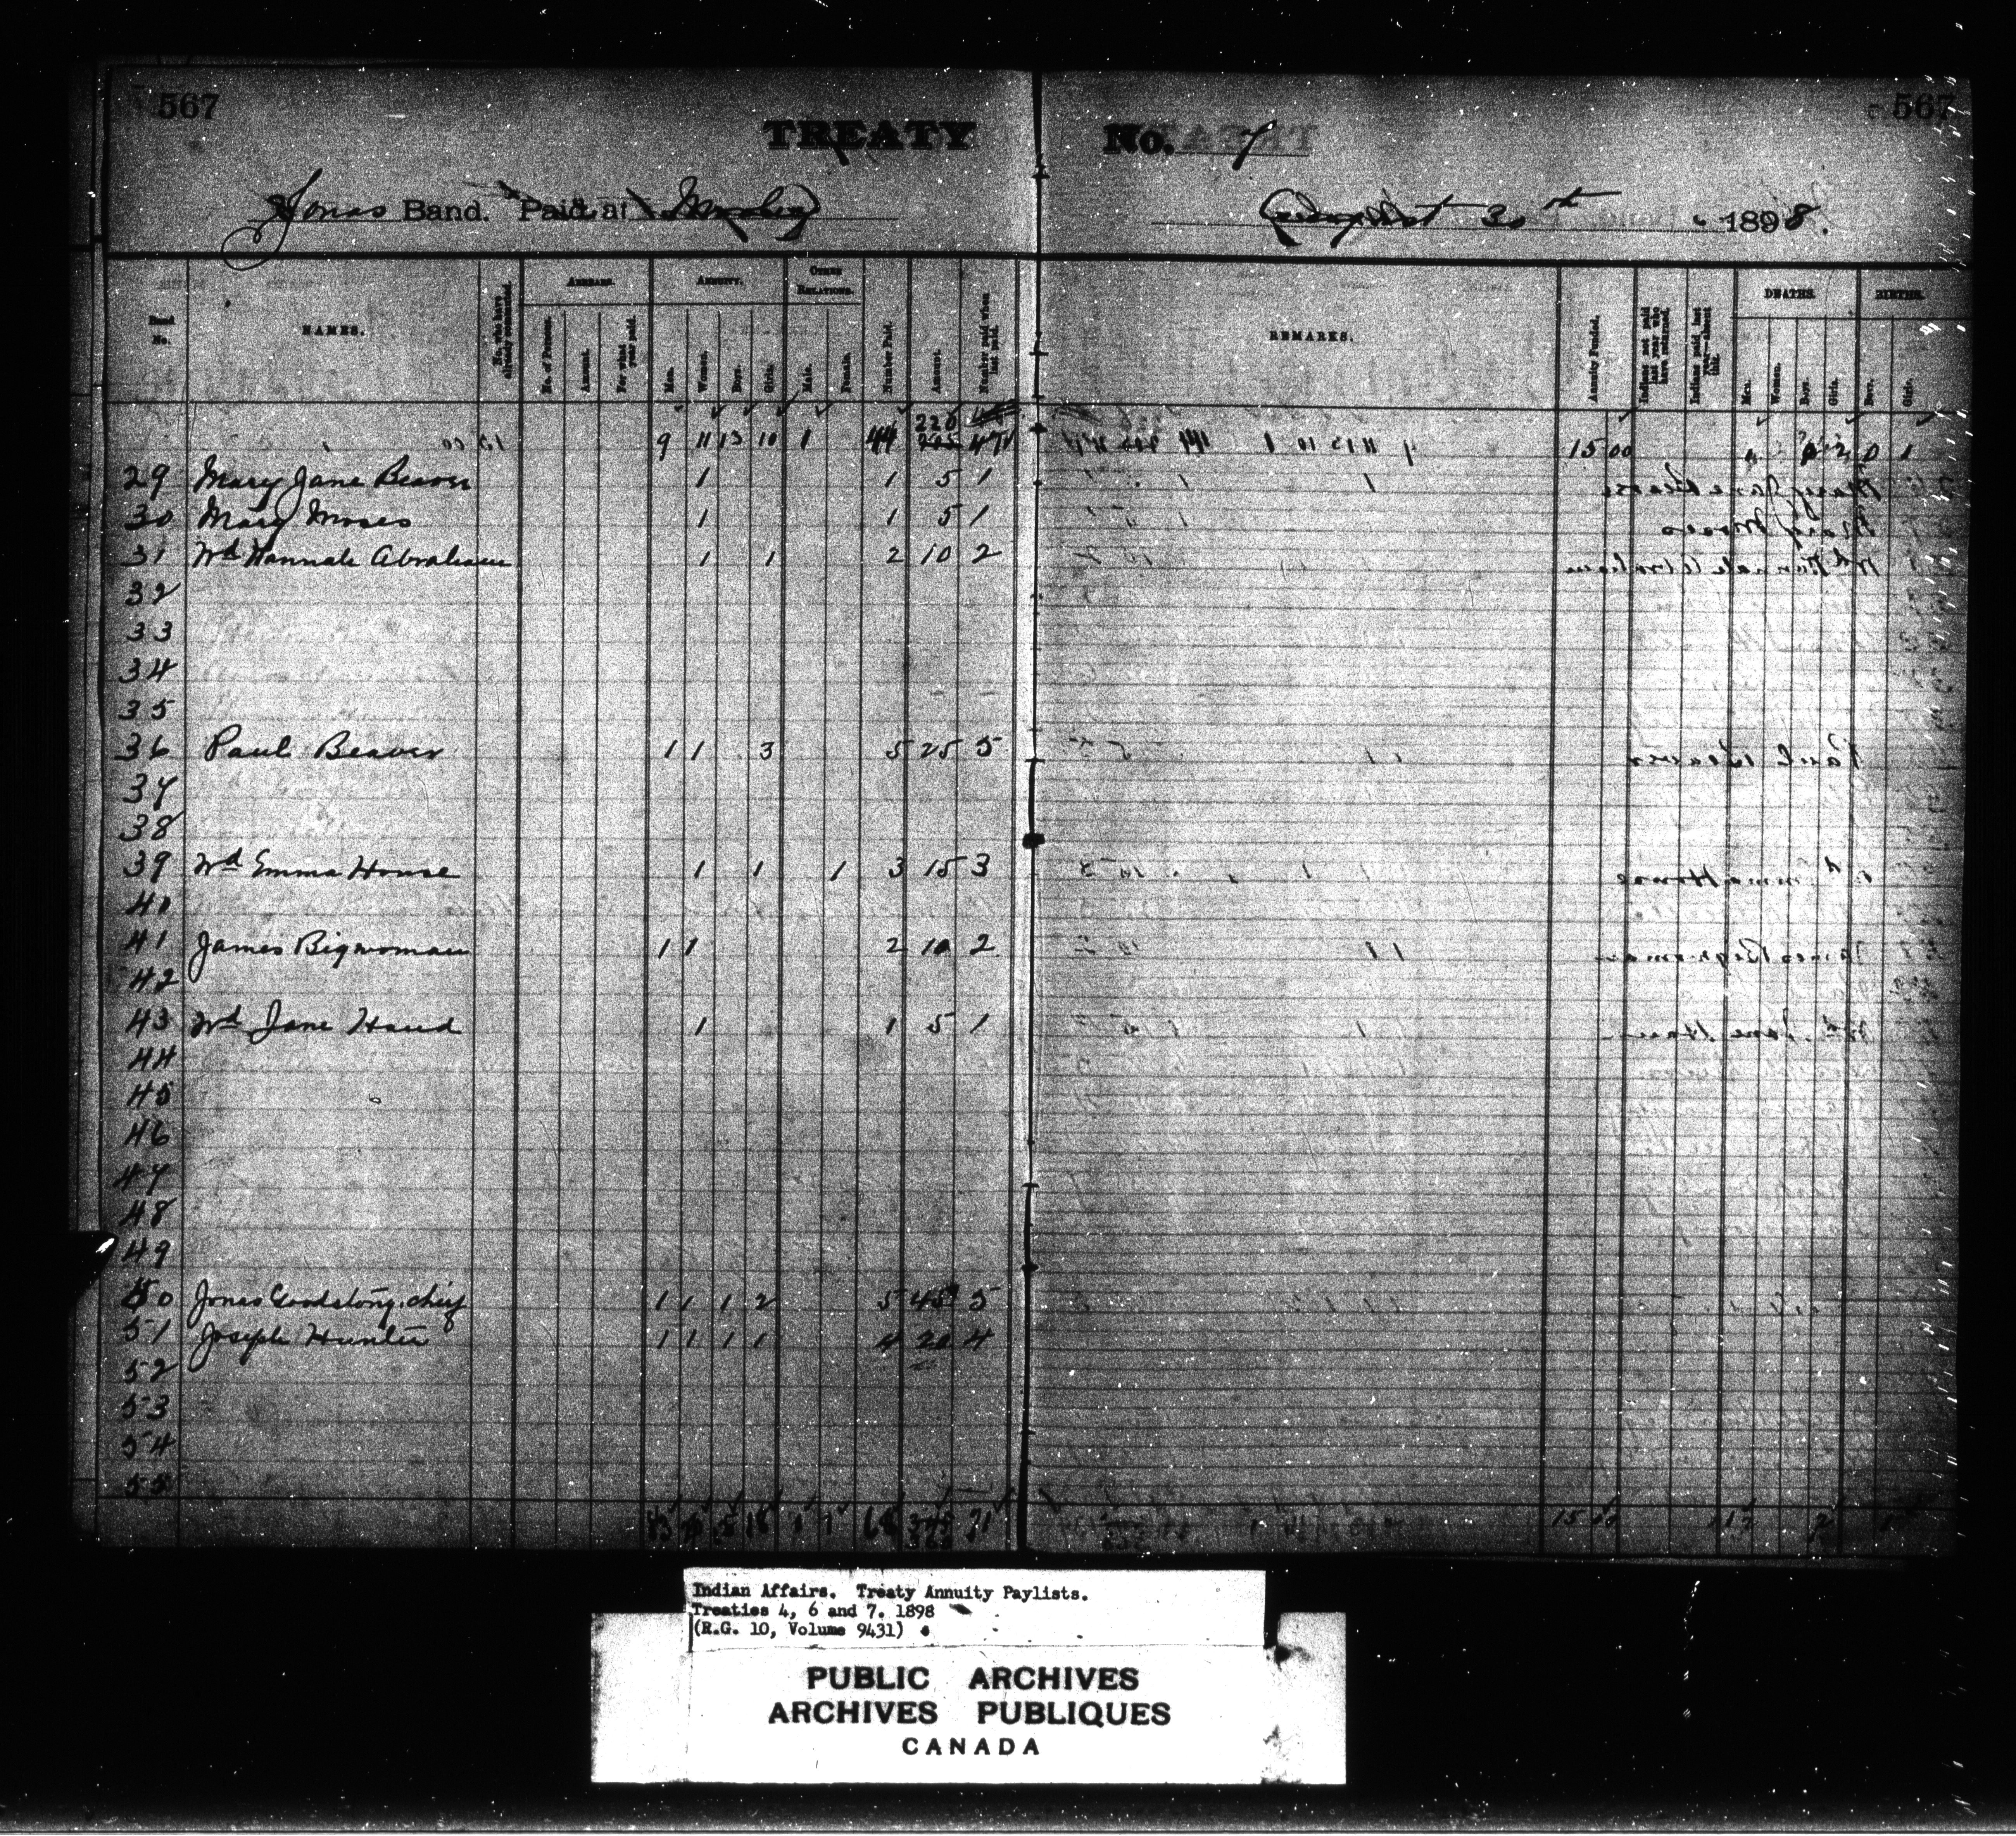 567
567
TREATY No. 7
Jonas Band. Paid at Morley August 30th 1898.
Band No.
NAMES.
No. who have already commuted.
ARREARS.
No. of Persons.
Amount.
For what year paid.
ANNUITY.
Men.
Women.
Boys.
Girls.
OTHER RELATIONS.
Male.
Female.
Number Paid.
Amount.
Number paid when last paid.
REMARKS.
Annuity Funded.
Indians not paid last year who have returned.
Indians paid last year—absent this.
DEATHS.
Men.
Women.
Boys.
Girls.
BIRTHS.
Boys.
Girls.
220
9 11 13 10 1 44 205 47 15 00
29 Mary Jane Beaver 1 1 5 1
30 Mary Moses 1 1 5 1
31 Wd Hannah Abraham 1 1 2 10 2
32
33
34
35
36 Paul Beaver 1 1 3 5 25 5
37
38
39 Wd Emma House 1 1 1 3 15 3
40
41 James Bigwoman 1 1 2 10 2
42
43 Wd Jane Hand 1 1 5 1
44
45
46
47
48
49
50 Jonas Goodstony, chief 1 1 1 2 5 45 5
51 Joseph Hunter 1 1 1 1 4 20 4
52
53
54
55
1 1 68 71 15 00
Indian Affairs. Treaty Annuity Paylists.
Treaties 4, 6 and 7. 1898
(R.G. 10, Volume 9431)
PUBLIC ARCHIVES
ARCHIVES PUBLIQUES
CANADA